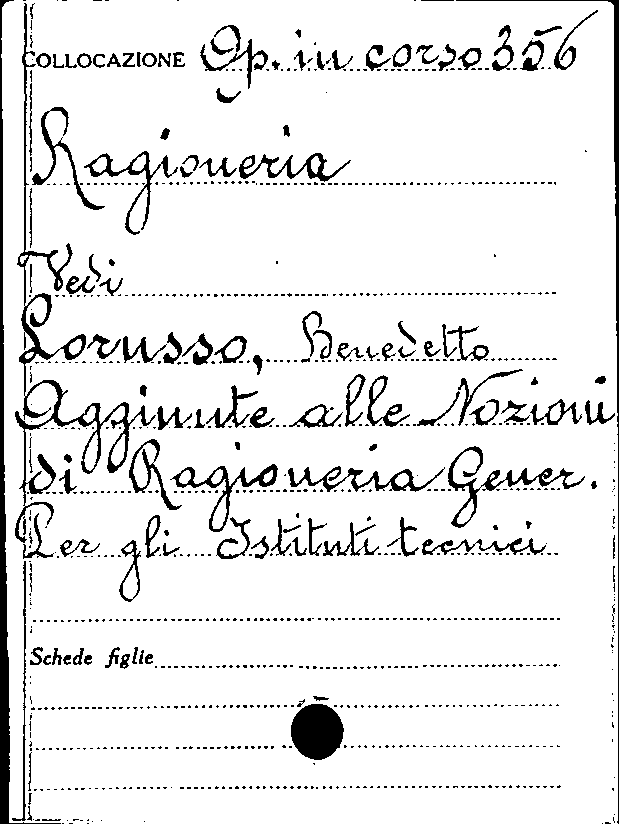 COLLOCAZIONE Op. in corso 356
Ragioneria
Vedi
Lorusso, Benedetto
Aggiunte alle Nozioni
di Ragioneria Gener.
Per gli Istituti tecnici
Schede figlie